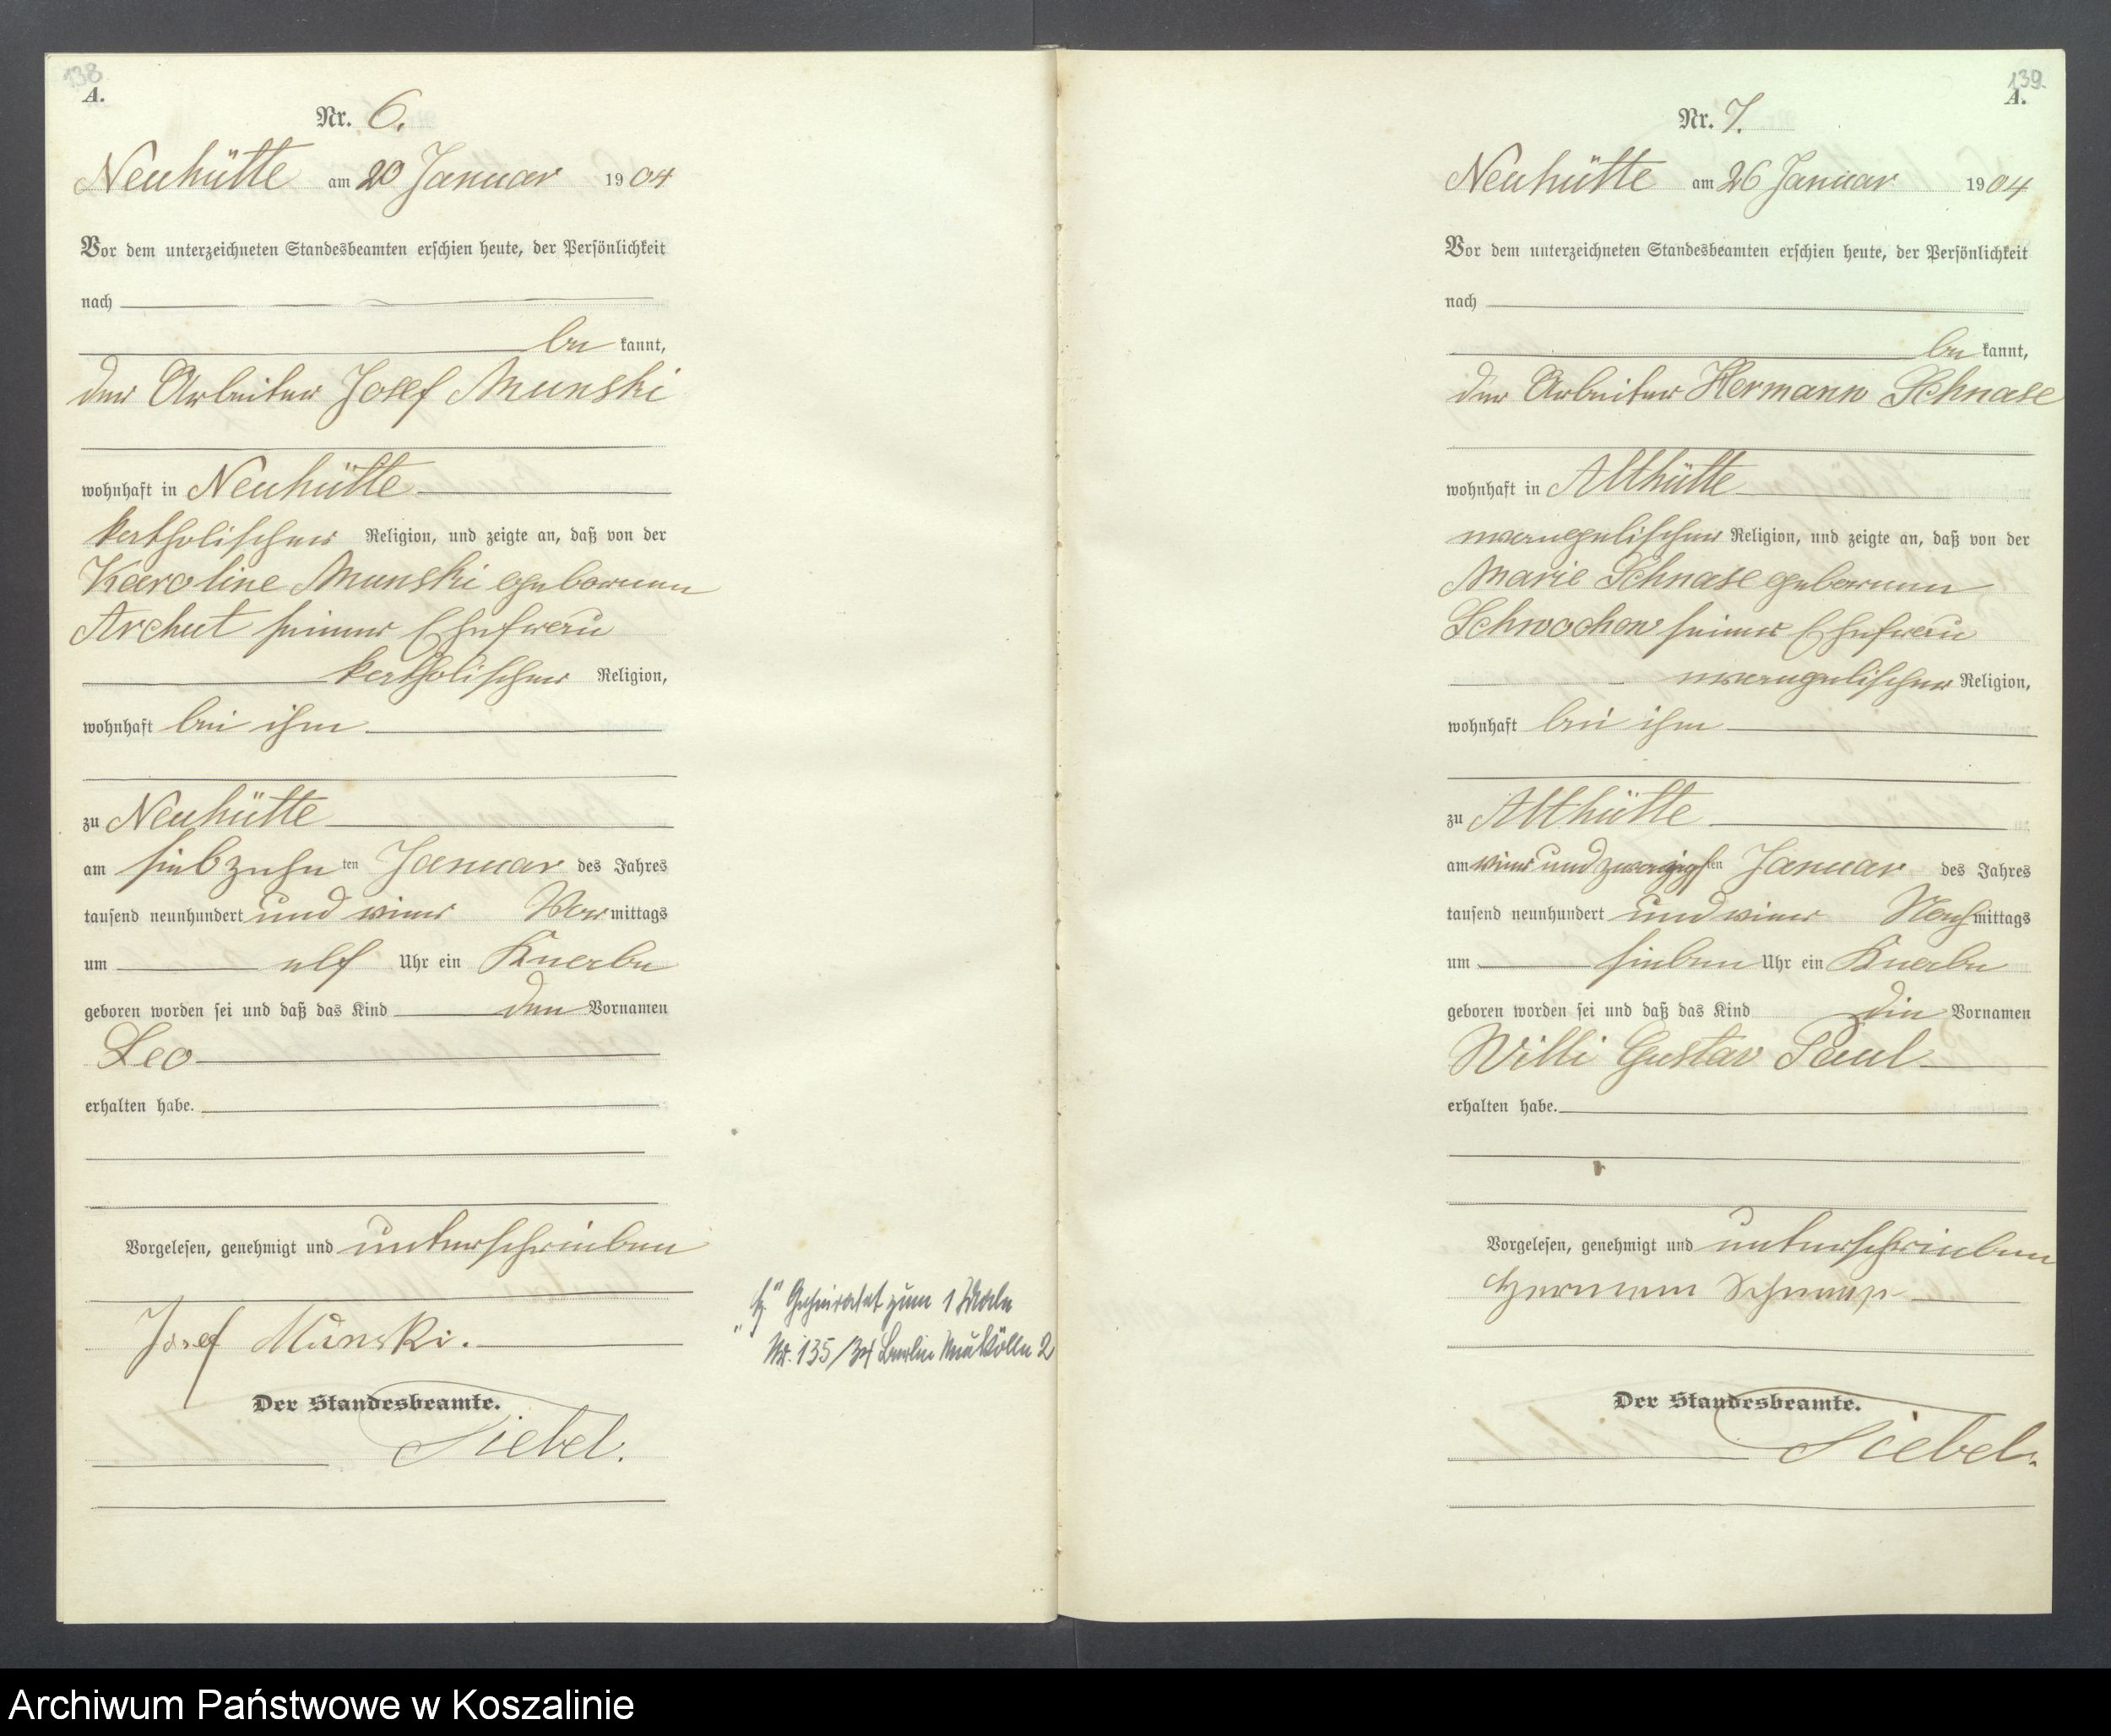 138
A.
Nr. 6.
Neuhütte am 20 Januar 1904
Vor dem unterzeichneten Standesbeamten erschien heute, der Persönlichkeit
nach
be kannt,
der Arbeiter Josef Munski
wohnhaft in Neuhütte
katholischer Religion, und zeigte an, daß von der
Karoline Munski geborenen
Archut seiner Ehefrau
katholischer Religion,
wohnhaft bei ihm
zu Neuhütte
am siebzehn ten Januar des Jahres
tausend neunhundert und vier Vor mittags
um elf Uhr ein Knabe
geboren worden sei und daß das Kind den Vornamen
Leo
erhalten habe.
Vorgelesen, genehmigt und unterschrieben
Josef Munski.
Der Standesbeamte.
Siebel.
Geheiratet zum 1 Male
Nr. 135/34 Berlin Neukölln 2
139
A.
Nr. 7.
Neuhütte am 26 Januar 1904
Vor dem unterzeichneten Standesbeamten erschien heute, der Persönlichkeit
nach
be kannt,
der Arbeiter Hermann Schnase
wohnhaft in Althütte
evangelischer Religion, und zeigte an, daß von der
Marie Schnase geborenen
Schwochow seiner Ehefrau
evangelischer Religion,
wohnhaft bei ihm
zu Althütte
am vier und zwanzigsten Januar des Jahres
tausend neunhundert und vier Nach mittags
um sieben Uhr ein Knabe
geboren worden sei und daß das Kind die Vornamen
Willi Gustav Paul
erhalten habe.
Vorgelesen, genehmigt und unterschrieben
Hermann Schnase
Der Standesbeamte.
Siebel.
Archiwum Państwowe w Koszalinie